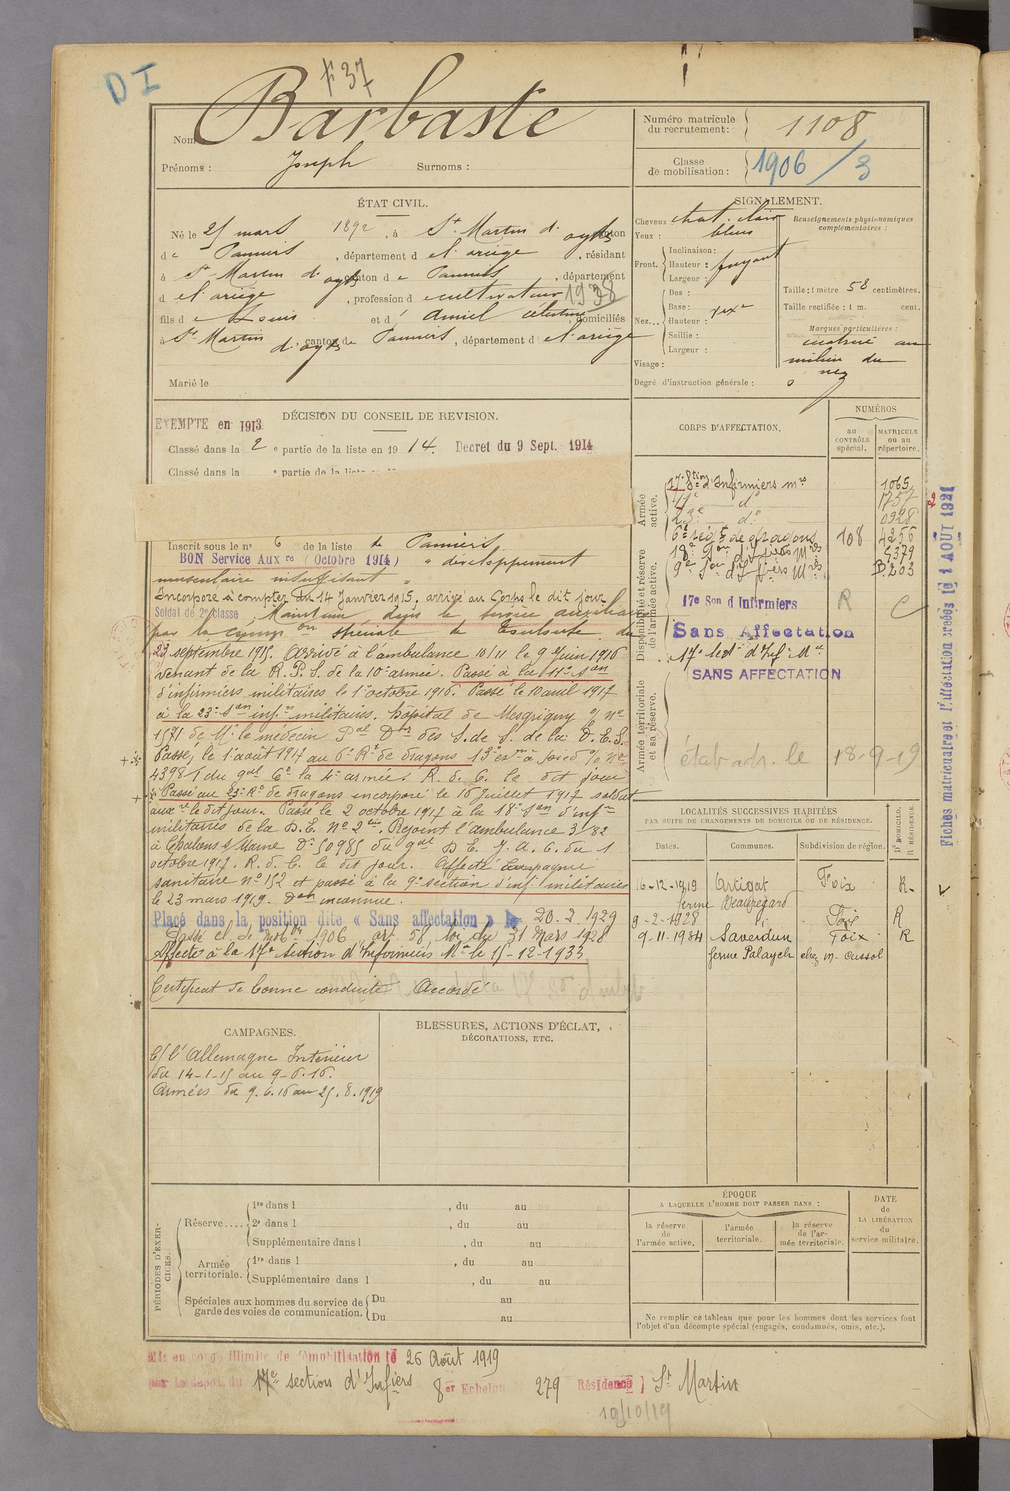 D I
F 37
Nom Barbaste
Prénoms : Joseph Surnoms :
Numéro matricule du recrutement : 1108
Classe de mobilisation : 1906 / 3
ÉTAT CIVIL.
Né le 25 mars 1892, à St Martin d'oydes canton
de Pamiers, département de l'ariège, résidant
à St Martin d'oydes canton de Pamiers, département
de l'ariège, profession de cultivateur 1938
fils de Louis et d' Amiel célestine, domiciliés
à St Martin d'oydes canton de Pamiers, département de l'ariège
Marié le
SIGNALEMENT.
Cheveux chat. clair
Yeux : bleus
Front. Inclinaison :
Hauteur : fuyant
Largeur :
Nez... Dos :
Base :
Hauteur :
Saillie :
Largeur :
Visage :
Renseignements physionomiques complémentaires :
Taille : 1 mètre 58 centimètres.
Taille rectifiée : 1 m. cent.
Marques particulières :
cicatrice au
milieu du
nez
Degré d'instruction générale : 0
DÉCISION DU CONSEIL DE REVISION.
EXEMPTE en 1913
Classé dans la 2e partie de la liste en 1914. Decret du 9 Sept. 1914
Classé dans la e partie de la liste en 19
Inscrit sous le n° 6 de la liste de Pamiers
BON Service Auxre (Octobre 1914) " développement
musculaire insuffisant "
Incorporé à compter du 14 Janvier 1915, arrivé au Corps le dit jour
Soldat de 2e classe, Maintenu dans le service auxiliaire
par la comm on spéciale de Toulouse du
23 septembre 1915. Arrivé à l'ambulance 10/11 le 9 Juin 1916
venant de la R. P. S. de la 10e armée. Passé à la 11e Son
d'infirmiers militaires le 1er octobre 1916. Passé le 10 avril 1917
à la 23e Son infres militaires. Hôpital de Mesgrigny
1571 de Mr le médecin Pal Dr des S. de S. de la D. E. S.
Passé, le 1er août 1917 au 6e Rt de dragons 13e esn
4398/1 du gal Ct la 4e armée R. d. C. le dit jour
Passé au 23e Rt de dragons incorporé le 16 Juillet 1917 soldat
aux re le dit jour. Passé le 2 octobre 1917 à la 18e Son d'infrs
militaires de la D. E. No 2. Rejoint l'ambulance 3/82
à Chalons s/ Marne Dn 50985 du gal D E
octobre 1917. R. d. C. le dit jour. Affecté compagnie
sanitaire n° 152 et passé à la 9e section d'inf. militaires
le 23 mars 1919. Don inconnue.
Placé dans la position dite « Sans affectation » le 20-2-1929
Passé cl de mobon 1906 art 58 loi du 31 Mars 1928
Affecté à la 17e Section d'Infirmiers Mres le 15-12-1933
Certificat de bonne conduite Accordé
CORPS D'AFFECTATION.
NUMÉROS
AU CONTRÔLE spécial.
MATRICULE OU AU répertoire.
Armée active.
17e Son d'Infirmiers mres 1065
11e do 1757
23e do 0928
6e rég t de dragons 108 4256
18e Son d'Infiers Mres 5379
9e Son d'Infiers Mres B.203
Disponibilité et réserve de l'armée active.
17e Son d Infirmiers R C
Sans Affectation
17e Sect on d'Inf. Mre
SANS AFFECTATION
Armée territoriale et sa réserve.
établ adr. le 18-9-19
Fiches matriculaire et d'affectation créées le 1 AOUT 1921
LOCALITÉS SUCCESSIVES HABITÉES
PAR SUITE DE CHANGEMENTS DE DOMICILE OU DE RÉSIDENCE.
Dates. Communes. Subdivision de région. D. DOMICILE. R. RÉSIDENCE.
16-12-1919 Artigat Foix R.
ferme Beauregard
9-2-1928 Foix R
9-11-1934 Saverdun Foix R
ferme Palaych chez M. Cassol
CAMPAGNES.
C/ l'Allemagne Intérieur
du 14-1-15 au 9-6-16.
Armées du 9.6.16 au 25.8.1919
BLESSURES, ACTIONS D'ÉCLAT,
DÉCORATIONS, ETC.
PÉRIODES D'EXERCICES.
Réserve.... 1re dans l , du au
2e dans l , du au
Supplémentaire dans l , du au
Armée territoriale. 1re dans l , du au
Supplémentaire dans l , du au
Spéciales aux hommes du service de garde des voies de communication. Du au
Du au
ÉPOQUE
A LAQUELLE L'HOMME DOIT PASSER DANS :
la réserve de l'armée active.
l'armée territoriale.
la réserve de l'armée territoriale.
DATE de LA LIBÉRATION du service militaire.
Ne remplir ce tableau que pour les hommes dont les services font
l'objet d'un décompte spécial (engagés, condamnés, omis, etc.).
Mis en congé illimité de démobilisation le 26 Août 1919
par le dépôt du 17e section d'Infiers 8er Echelon 279 Résidence } St Martin
19/10/19